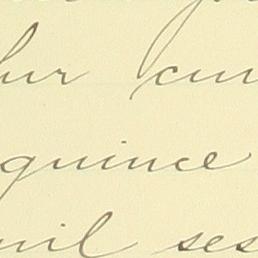 hur cu
quince
mil ses